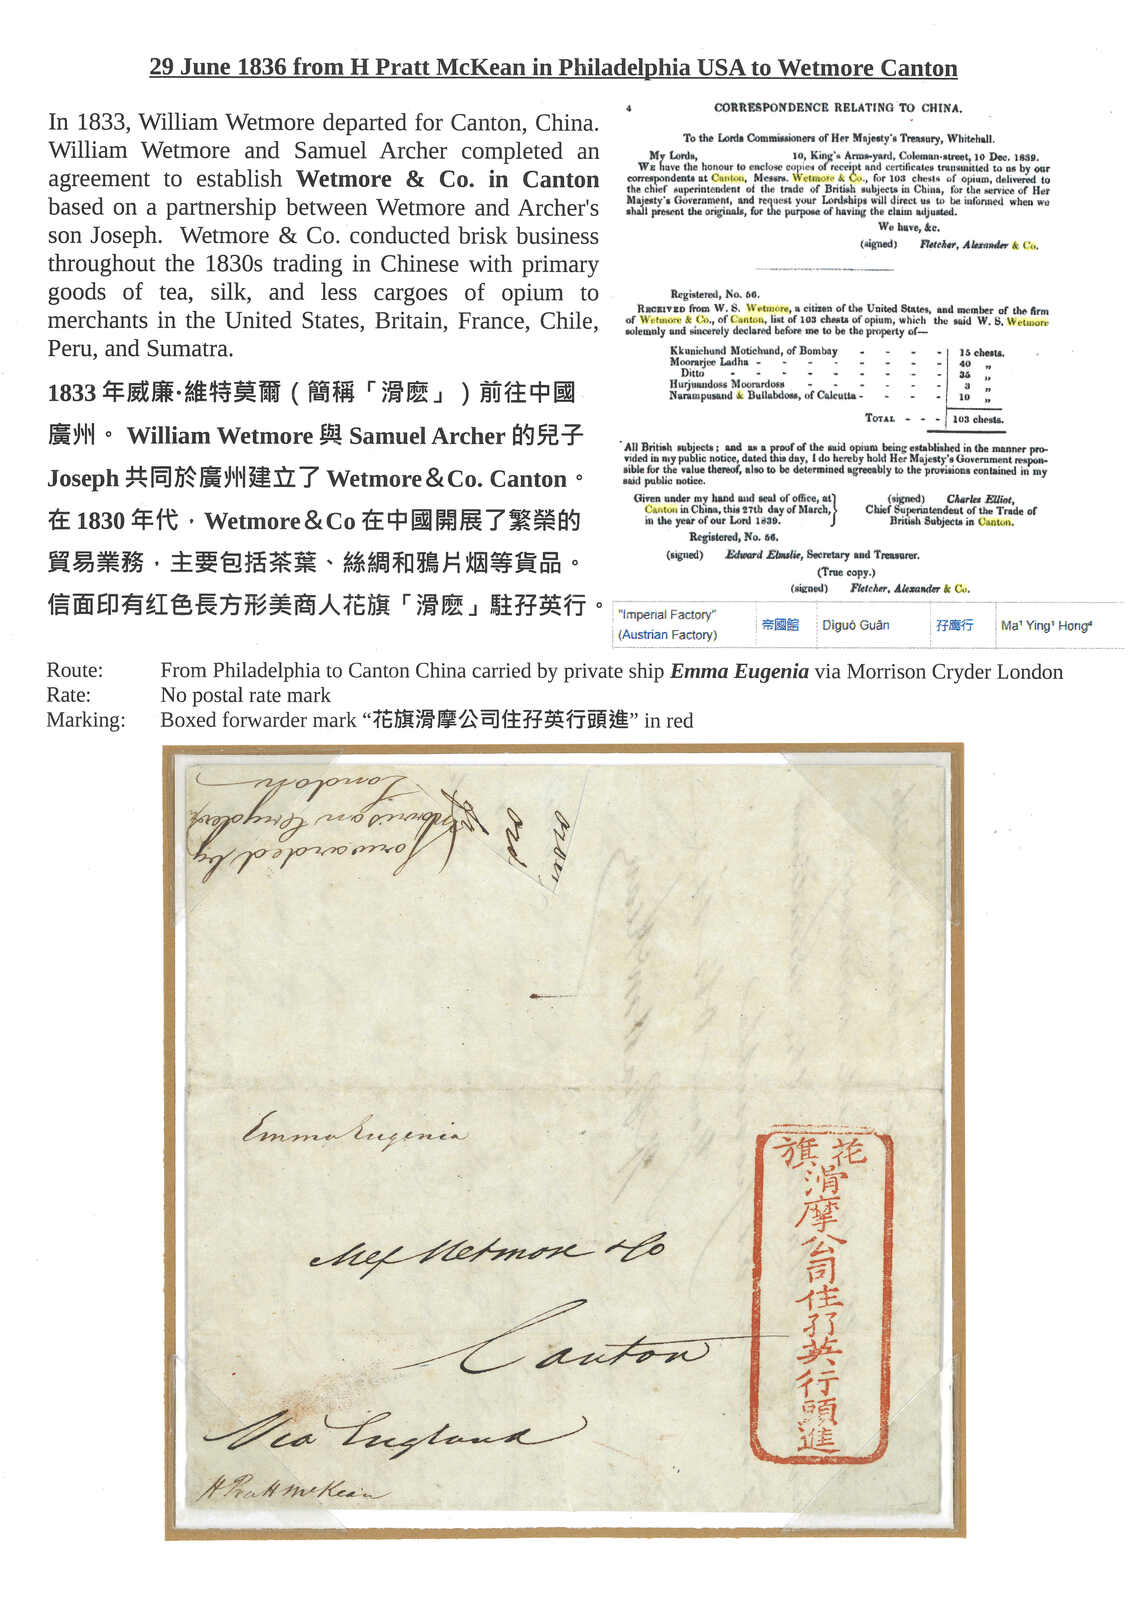 29 June 1836 from H Pratt McKean in Philadelphia USA to Wetmore Canton
In 1833, William Wetmore departed for Canton, China.
William Wetmore and Samuel Archer completed an
agreement to establish Wetmore & Co. in Canton
based on a partnership between Wetmore and Archer's
son Joseph. Wetmore & Co. conducted brisk business
throughout the 1830s trading in Chinese with primary
goods of tea, silk, and less cargoes of opium to
merchants in the United States, Britain, France, Chile,
Peru, and Sumatra.
1833 年威廉·維特莫爾（簡稱「滑麼」）前往中國
廣州。 William Wetmore 與 Samuel Archer 的兒子
Joseph 共同於廣州建立了 Wetmore＆Co. Canton。
在 1830 年代，Wetmore＆Co 在中國開展了繁榮的
貿易業務，主要包括茶葉、絲綢和鴉片烟等貨品。
信面印有红色長方形美商人花旗「滑麼」駐孖英行。
4 CORRESPONDENCE RELATING TO CHINA.
To the Lords Commissioners of Her Majesty's Treasury, Whitehall.
My Lords, 10, King's Arms-yard, Coleman-street, 10 Dec. 1839.
WE have the honour to enclose copies of receipt and certificates transmitted to us by our
correspondents at Canton, Messrs. Wetmore & Co., for 103 chests of opium, delivered to
the chief superintendent of the trade of British subjects in China, for the service of Her
Majesty's Government, and request your Lordships will direct us to be informed when we
shall present the originals, for the purpose of having the claim adjusted.
We have, &c.
(signed) Fletcher, Alexander & Co.
Registered, No. 56.
RECEIVED from W. S. Wetmore, a citizen of the United States, and member of the firm
of Wetmore & Co., of Canton, list of 103 chests of opium, which the said W. S. Wetmore
solemnly and sincerely declared before me to be the property of—
Kkunichund Motichund, of Bombay - - - - 15 chests.
Moorarjee Ladha - - - - - - - - 40 „
Ditto - - - - - - - - 35 „
Hurjuandoss Moorardoss - - - - - - 3 „
Narampusand & Bullabdoss, of Calcutta - - - - 10 „
TOTAL - - - 103 chests.
All British subjects; and as a proof of the said opium being established in the manner pro-
vided in my public notice, dated this day, I do hereby hold Her Majesty's Government respon-
sible for the value thereof, also to be determined agreeably to the provisions contained in my
said public notice.
Given under my hand and seal of office, at
Canton in China, this 27th day of March,
in the year of our Lord 1839.
(signed) Charles Elliot,
Chief Superintendent of the Trade of
British Subjects in Canton.
Registered, No. 56.
(signed) Edward Elmslie, Secretary and Treasurer.
(True copy.)
(signed) Fletcher, Alexander & Co.
"Imperial Factory"
(Austrian Factory) 帝國館 Dìguó Guǎn 孖鷹行 Ma¹ Ying¹ Hong⁴
Route: From Philadelphia to Canton China carried by private ship Emma Eugenia via Morrison Cryder London
Rate: No postal rate mark
Marking: Boxed forwarder mark “花旗滑摩公司住孖英行頭進” in red
Forwarded by
Morrison Cryder
London
Emma Eugenia
Mess Wetmore & Co
Canton
Via England
H Pratt McKean
花旗
滑摩公司住孖英行頭進